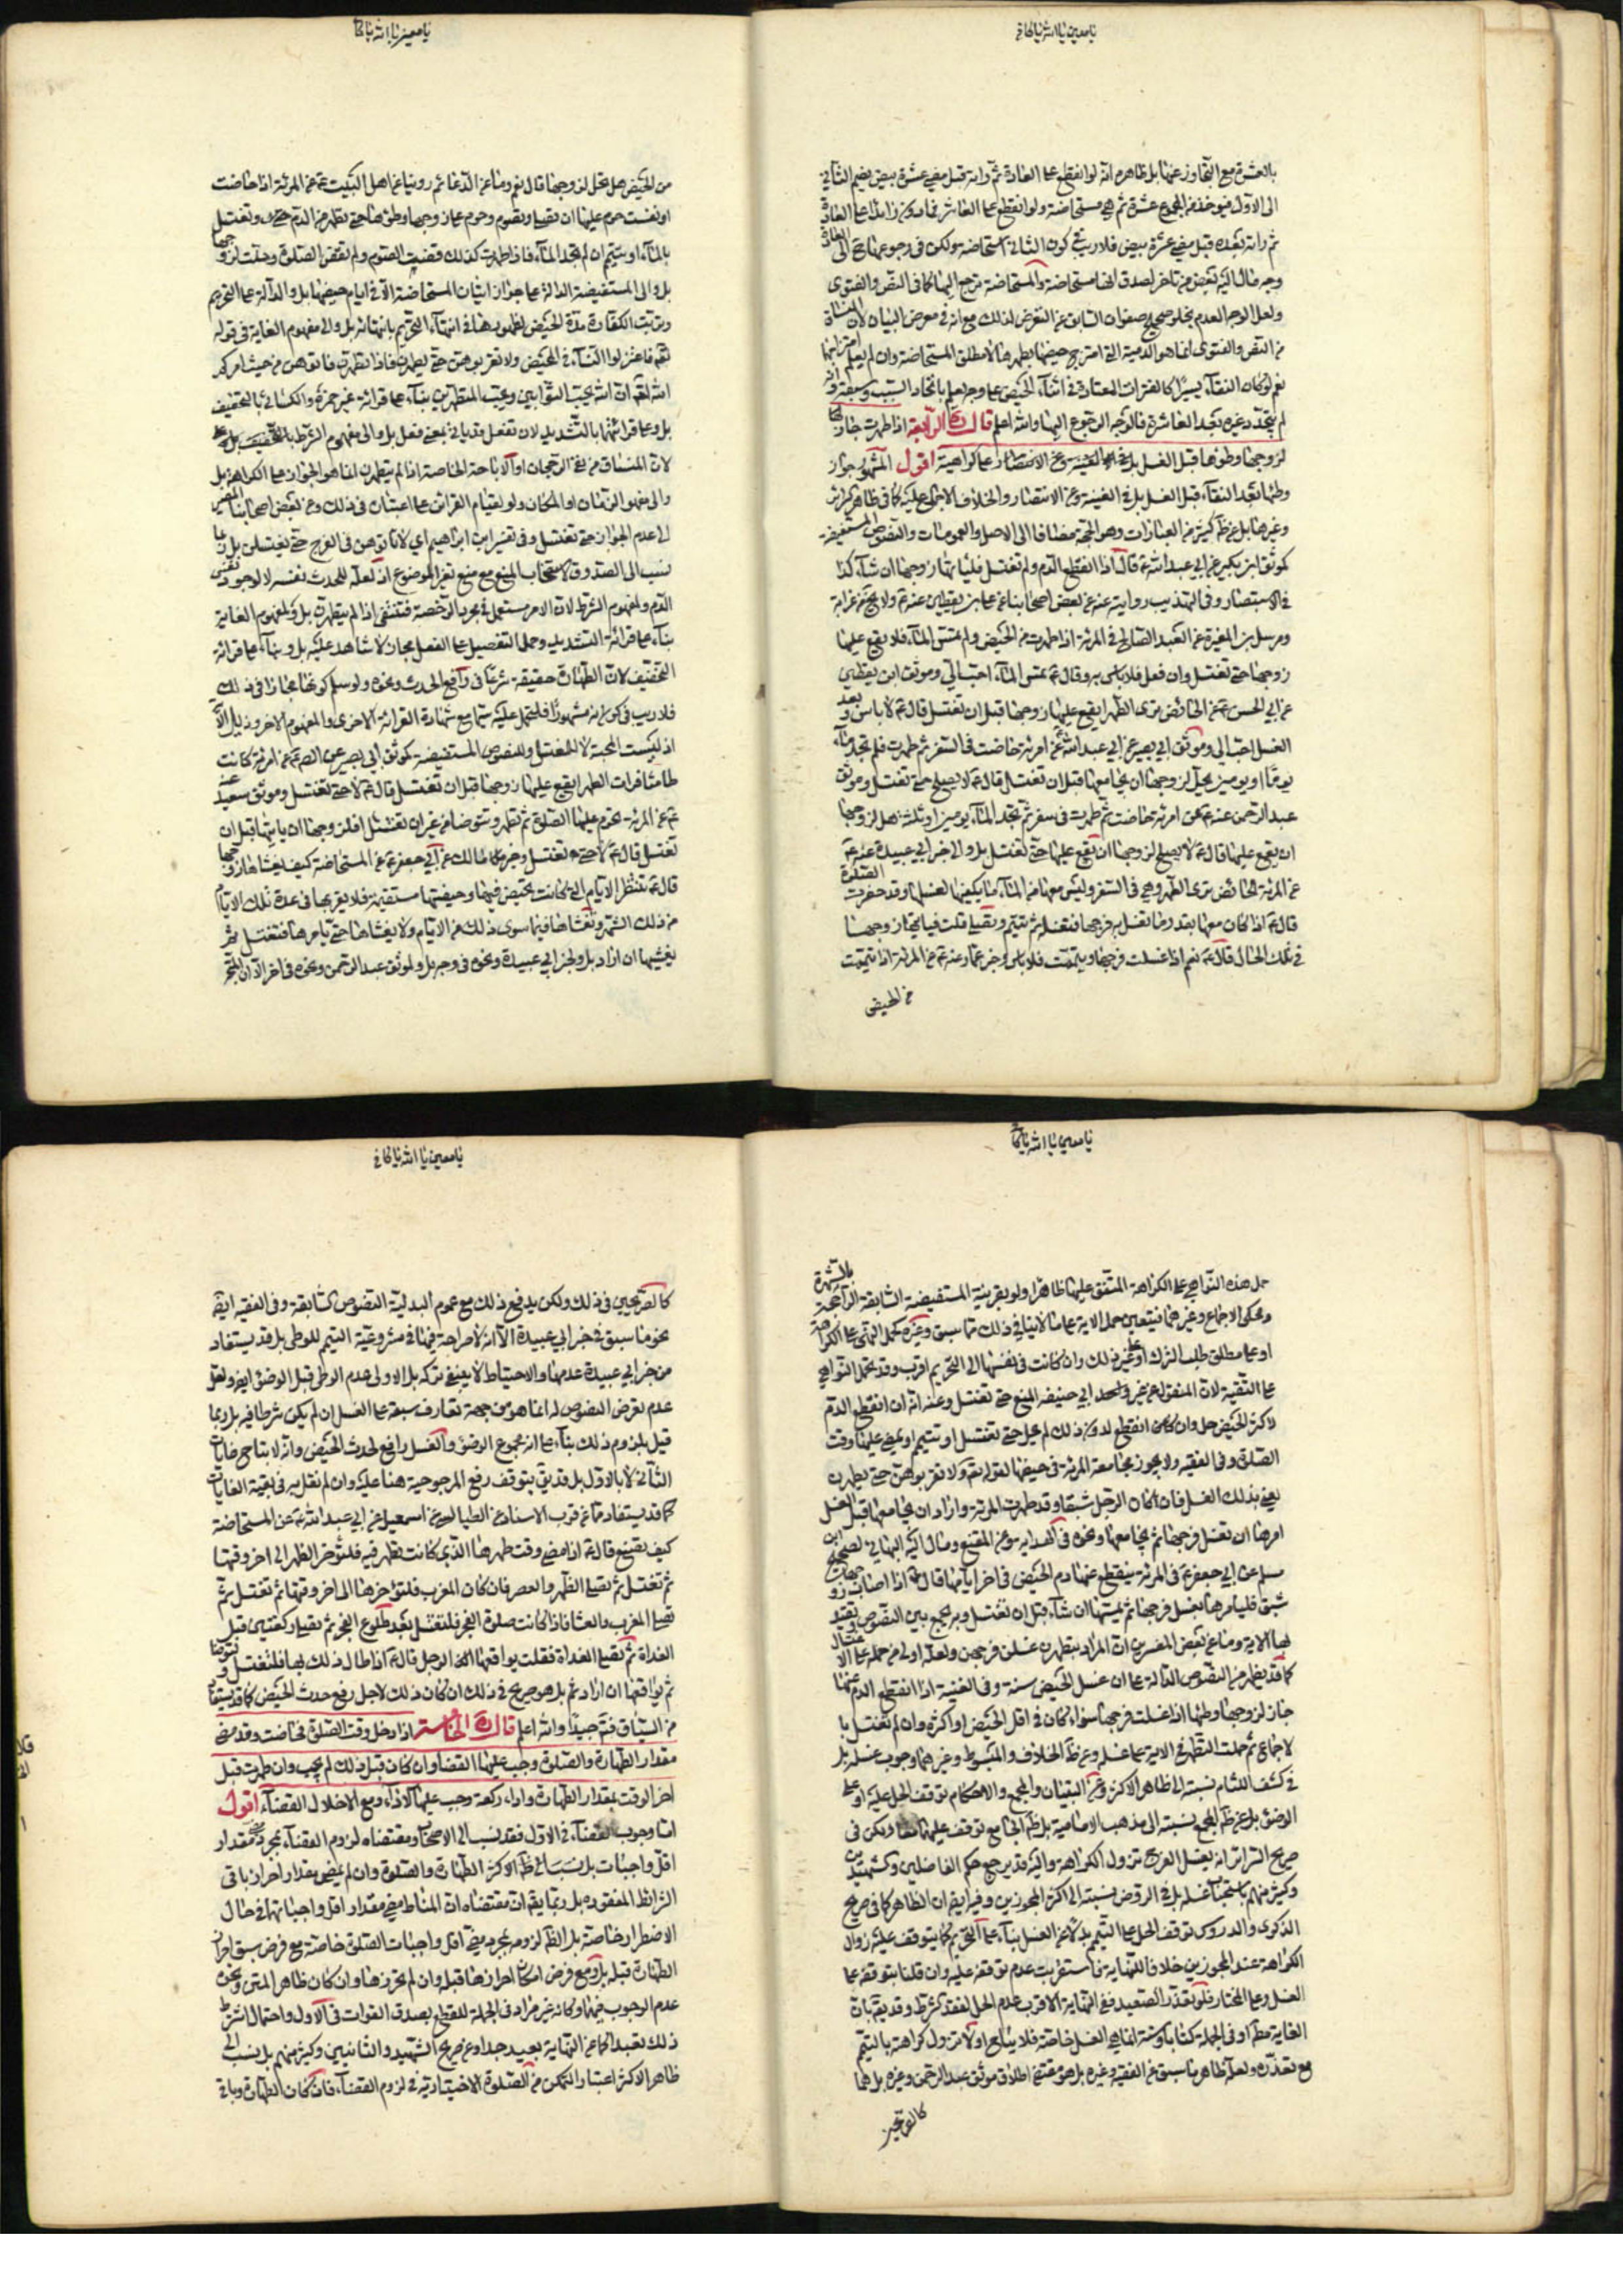 يا معين يا الله يا كافي
بالعشرة مع التجاوز عنها بل ظاهرهم انه لو انقطع على العادة ثم رأته قبل مضي عشرة بيض يضم الثاني
الى الاول
ثم رأته بعده قبل مضي عشرة بيض فلا ريب في كون الثاني استحاضة ولكن في رجوعها ح الى العادة
وجه مال اليه بعض من تأخر لصدق انها مستحاضة والمستحاضة ترجع اليها كما في النص والفتوى
ولعل الوجه العدم لخلو صحيح صفوان السابق عن التعرض لذلك مع انه في معرض البيان لان المنساق
من النص والفتوى انما هو الدمية التي امتزج حيضها بطهرها لا مطلق المستحاضة وان لم يعلم امتزاجهما
نعم لو كان النقاء يسيرا كالفترات المعتادة في اثناء الحيض على وجه يعلم باتحاد السبب وسبقه وانه
لم يتجدد غيره بعد العاشرة فالوجه الرجوع اليها والله اعلم قال ره الرابعة اذا طهرت جاز
لزوجها وطؤها قبل الغسل على كراهية اقول المشهور جواز
وطئها بعد النقاء قبل الغسل بل في الغنية وعن الانتصار والخلاف الاجماع عليه كما في ظاهر كنز
وغيرها بل عن ظ كثير من العبارات وهو الحجة مضافا الى الاصل والعمومات والنصوص المستفيضة
كموثق ابن بكير عن ابي عبد الله ع قال اذا انقطع الدم ولم تغتسل فليأتها زوجها ان شاء كذا
في الاستبصار وفي التهذيب روايته عنه عن بعض اصحابنا عن علي بن يقطين عنه ع ولا يخ عن غرابة
ومرسل بن المغيرة عن العبد الصالح في المرئة اذا طهرت من الحيض ولم تمس الماء فلا يقع عليها
زوجها حتى تغتسل وان فعل فلا باس به وقال ع تمس الماء احب الي وموثق ابن يقطين
عن ابي الحسن ع عن الحائض ترى الطهر ايقع عليها زوجها قبل ان تغتسل قال ع لا باس وبعد
الغسل احب الي وموثق ابي بصير عن ابي عبد الله ع عن امرئة حاضت في السفر ثم طهرت فلم تجد ماء
يوما او يومين يحل لزوجها ان يجامعها قبل ان تغتسل قال ع لا يصلح حتى تغتسل وموثق
عبد الرحمن عنه ع عن امرئة حاضت ثم طهرت في سفر فلم تجد الماء يومين او ثلثة هل لزوجها
ان يقع عليها قال ع لا يصلح لزوجها ان يقع عليها حتى تغتسل بل والى خبر ابي عبيدة عنه ع
عن المرئة الحائض ترى الطهر وهي في السفر وليس معها من الماء ما يكفيها لغسلها وقد حضرت الصلوة
قال ع اذا كان معها بقدر ما تغسل به فرجها فتغسله ثم تتيمم وتصلي قلت فيأتيها زوجها
في تلك الحال قال ع نعم اذا غسلت فرجها وتيممت فلا باس وخبر عمار عنه ع عن المرئة اذا تيممت
من الحيض
يا معين يا الله يا كافي
من الحيض هل تحل لزوجها قال نعم وما عن الدعائم روينا عن اهل البيت ع عن المرئة اذا حاضت
او نفست حرم عليها ان تصلي وتصوم وحرم على زوجها وطؤها حتى تطهر من الدم وتغتسل
بالماء او تتيمم ان لم تجد الماء فاذا طهرت كذلك قضت الصوم ولم تقض الصلوة وحلت لزوجها
بل والى المستفيضة الدالة على جواز اتيان المستحاضة الا في ايام حيضها بل والدالة على التحريم
وترتب الكفارة مدة الحيض لظهورها في انتهاء التحريم بانتهائه بل والى مفهوم الغاية في قوله
تعالى فاعتزلوا النساء في المحيض ولا تقربوهن حتى يطهرن فاذا تطهرن فاتوهن من حيث امركم
الله ان الله يحب التوابين ويحب المتطهرين بناء على قرائة غير حمزة والكسائي بالتخفيف
بل وعلى قرائتهما بالتشديد لان تفعل قد ياتي بمعنى فعل بل والى مفهوم الشرط
لان المنساق من نفي الرجحان او الاباحة الخاصة اذا لم يتطهرن انما هو الجواز على الكراهة بل
والى مفهوم الزمان او المكان ولو لقيام القرائن على اعتباره في ذلك وعن بعض اصحابنا المصير
الى عدم الجواز حتى تغتسل وفي تفسير ابن ابراهيم اي لا تاتوهن في الفرج حتى يغتسلن بل ربما
ينسب الى الصدوق لاستصحاب المنع مع منع تغير الموضوع اذ لعله للحدث نفسه لا لوجود نفس
الدم ولمفهوم الشرط لان الامر مستعمل في مجرد الرخصة فتنتفي اذا لم يتطهرن بل ولمفهوم الغاية
بناء على قرائة التشديد وحمل التفعيل على الفعل مجاز لا شاهد عليه بل وبناء على قرائة
التخفيف لان الطهارة حقيقة شرعا في رافع الحدث ونحوه ولو سلم كونها مجازا في ذلك
فلا ريب في كونه مشهورا فليحمل عليه سيما مع شهادة القرائة الاخرى والمفهوم الاخر وذيل الاية
اذ ليست المحبة الا للمغتسل وللنصوص المستفيضة كموثق ابي بصير عن الص ع عن امرئة كانت
طامثا فرات الطهر ايقع عليها زوجها قبل ان تغتسل قال ع لا حتى تغتسل وموثق سعيد عنه
ع عن المرئة تحرم عليها الصلوة ثم تطهر وتتوضا من غير ان تغتسل افلزوجها ان ياتيها قبل ان
تغتسل قال ع لا حتى تغتسل وخبر مالك عن ابي جعفر ع عن المستحاضة كيف يغشاها زوجها
قال ع تنتظر الايام التي كانت تحيض فيها وحيضتها مستقيمة فلا يقربها في عدة تلك الايام
من ذلك الشهر ويغشاها فيما سوى ذلك من الايام ولا يغشاها حتى يامرها فتغتسل ثم
يغشيها ان اراد بل ولخبر ابي عبيدة ونحوه في وجه بل ولموثق عبد الرحمن ونحوه في اخر الا ان المتجه
يا معين يا الله يا كافي
حمل هذه النواهي على الكراهة المتفق عليها ظاهرا ولو بقرينة المستفيضة السابقة الراجحة بالشهرة
ومحكي الاجماع وغيرهما فيتعين حمل الاية على ما لا ينافي ذلك مما سبق وغيره كحمل النهي على الكراهة
او على مطلق طلب الترك او على غير ذلك وان كانت في نفسها الى التحريم اقرب وقد تحمل النواهي
على التقية لان المنقول عن غير واحد ابي حنيفه المنع حتى تغتسل وعنه انه ان انقطع الدم
لاكثر الحيض حل وان كان انقطع لدون ذلك لم يحل حتى تغتسل او تتيمم او يمضي عليها وقت
الصلوة وفي الفقيه ولا يجوز مجامعة المرئة في حيضها لقوله تعالى ولا تقربوهن حتى يطهرن
يعني بذلك الغسل فان كان الرجل شبقا وقد طهرت المرئة واراد ان يجامعها قبل الغسل
امرها ان تغسل فرجها ثم يجامعها ونحوه في الهداية وعن المقنع ومال اليه البهائي لصحيح ابن
مسلم عن ابي جعفر ع في المرئة ينقطع عنها دم الحيض في اخر ايامها قال ع اذا اصاب زوجها
شبق فليامرها تغسل فرجها ثم يمسها ان شاء قبل ان تغتسل وبه يجمع بين النصوص
وما عن بعض المفسرين ان المراد بتطهرن غسلن فرجهن ولعله اولى من حمله على الاغتسال
كما قد يظهر من النصوص الدالة على ان غسل الحيض سنة وفي الغنية اذا انقطع الدم عنها
جاز لزوجها وطئها اذا غسلت فرجها سواء كان في اقل الحيض او اكثره وان لم تغتسل با
لاجماع ثم حملت التطهر في الاية على غسله وعن ظ الخلاف والمبسوط وغيرهما وجوب غسله بل
في كشف اللثام نسبته الى ظاهر الاكثر وعن التبيان والمجمع والاحكام توقف الحل عليه او على
الوضوء بل عن ظ المجمع نسبته الى مذهب الامامية بل ظ الجامع توقفه عليهما ولكن في
صريح السرائر انه بغسل الفرج تزول الكراهة واليه قد يرجع حكم الفاضلين والشهيدين
وكثير منهم باستحباب غسله بل في الروض نسبته الى اكثر المجوزين وفيه ايض ان الظاهر كما في صريح
الذكرى والدروس توقف الحل على التيمم بدلا عن الغسل بناء على التحريم كما يتوقف عليه زوال
الكراهة عند المجوزين خلافا للنهاية فاستقربت عدم توقفه عليه وان قلنا بتوقفه على
الغسل وعلى المختار فلو تعذر الصعيد ففي النهاية الاقرب عدم الحل لفقد شرطه وقد يقال بان
الغاية مط او في الجملة كتابا وسنة انما هي الغسل خاصة فلا يباح او لا تزول كراهة بالتيمم
مع تعذره ولعله ظاهر ما سبق عن الفقيه وغيره بل هو مقتضى اطلاق موثق عبد الرحمن وغيره بل هما
كالصريحين
يا معين يا الله يا كافي
كالصريحين في ذلك ولكن يدفع ذلك مع عموم البدلية النصوص السابقة وفي الفقيه ايض
نحو ما سبق في خبر ابي عبيدة الا انه لا صراحة فيها في مشروعية التيمم للوطي بل قد يستفاد
من خبر ابي عبيدة عدمها والاحتياط لا ينبغي تركه بل الاولى عدم الوطي قبل الوضوء ايض ولعل
عدم تعرض النصوص له انما هو من جهة تعارف سبقه على الغسل ان لم يكن شرطا فيه بل ربما
قيل بلزوم ذلك بناء على انه مجموع الوضوء والغسل رافع لحدث الحيض وانه لا يباح غايات
الثاني الا بالاول بل قد يق بتوقف رفع المرجوحية هنا عليه وان لم نقل به في بقية الغايات
كما قد يستفاد مما عن قرب الاسناد عن الطيالسي عن اسمعيل عن ابي عبد الله ع عن المستحاضة
كيف تصنع قال ع اذا مضى وقت طهرها الذي كانت تطهر فيه فلتؤخر الظهر الى اخر وقتها
ثم تغتسل ثم تصلي الظهر والعصر فان كان المغرب فلتؤخرها الى اخر وقتها ثم تغتسل ثم
تصلي المغرب والعشا فاذا كانت صلوة الفجر فلتغتسل بعد طلوع الفجر ثم تصلي ركعتين قبل
الغداة ثم تصلي الغداة فقلت يواقعها الرجل قال ع اذا طال ذلك بها فلتغتسل ولتتوضا
ثم يواقعها ان اراد ثم بل هو صريح في ذلك ان كان ذلك لاجل رفع حدث الحيض كما قد يستفاد
من السياق فتم جيدا والله اعلم قال ره الخامسة اذا دخل وقت الصلوة فحاضت وقد مضى
مقدار الطهارة والصلوة وجب عليها القضا وان كان قبل ذلك لم يجب وان طهرت قبل
اخر الوقت بمقدار الطهارة واداء ركعة وجب عليها الاداء ومع الاخلال القضاء اقول
اما وجوب القضاء في الاول فقد نسب الى الاصحاب ومقتضاه لزوم القضاء بمجرد مضي مقدار
اقل واجبات بل نسب الى ظ الاكثر الطهارة والصلوة وان لم يمض مقدار احراز باقي
الشرائط المفقودة بل ربما يق ان مقتضاه ان المناط مضي مقدار اقل واجباتها في حال
الاضطرار خاصة بل الظ لزومه بمجرد مضي اقل واجبات الصلوة خاصة مع فرض سبق احراز
الطهارة قبله بل ومع فرض امكان احرازها قبله وان لم تحرزها وان كان ظاهر المتن ونحوه
عدم الوجوب فيهما وكانه غير مراد في الجملة للقطع بصدق الفوات في الاول واحتمال اشتراط
ذلك تعبدا كما عن النهاية بعيد جدا وعن صريح الشهيد والثانيين وكثير منهم بل نسب الى
ظاهر الاكثر اعتبار التمكن من الصلوة الاختيارية في لزوم القضاء فان كان الطهارة وباقي